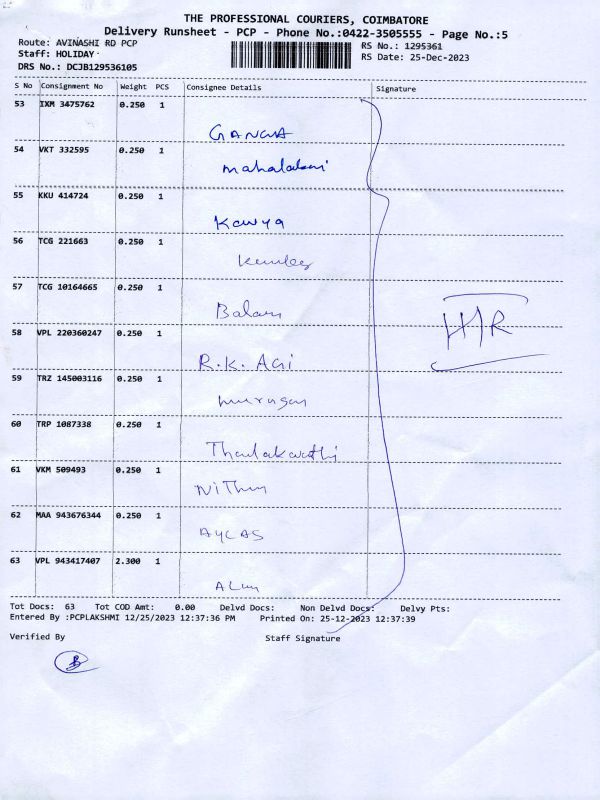 THE PROFESSIONAL COURIERS, COIMBATORE
Delivery Runsheet - PCP - Phone No.:0422-3505555 - Page No.:5
Route: AVINASHI RD PCP
Staff: HOLIDAY
DRS No.: DCJB129536105
RS No.: 1295361
RS Date: 25-Dec-2023
S No Consignment No Weight PCS Consignee Details Signature
53 IXM 3475762 0.250 1
GANGA
54 VKT 332595 0.250 1
55 KKU 414724 0.250 1
Kavya
56 TCG 221663 0.250 1
57 TCG 10164665 0.250 1
Balan
58 VPL 220360247 0.250 1
R.K. Agi
59 TRZ 145003116 0.250 1
murugan
60 TRP 1087338 0.250 1
61 VKM 509493 0.250 1
Nithin
62 MAA 943676344 0.250 1
63 VPL 943417407 2.300 1
Tot Docs: 63 Tot COD Amt: 0.00 Delvd Docs: Non Delvd Docs: Delvy Pts:
Entered By :PCPLAKSHMI 12/25/2023 12:37:36 PM Printed On: 25-12-2023 12:37:39
Verified By Staff Signature